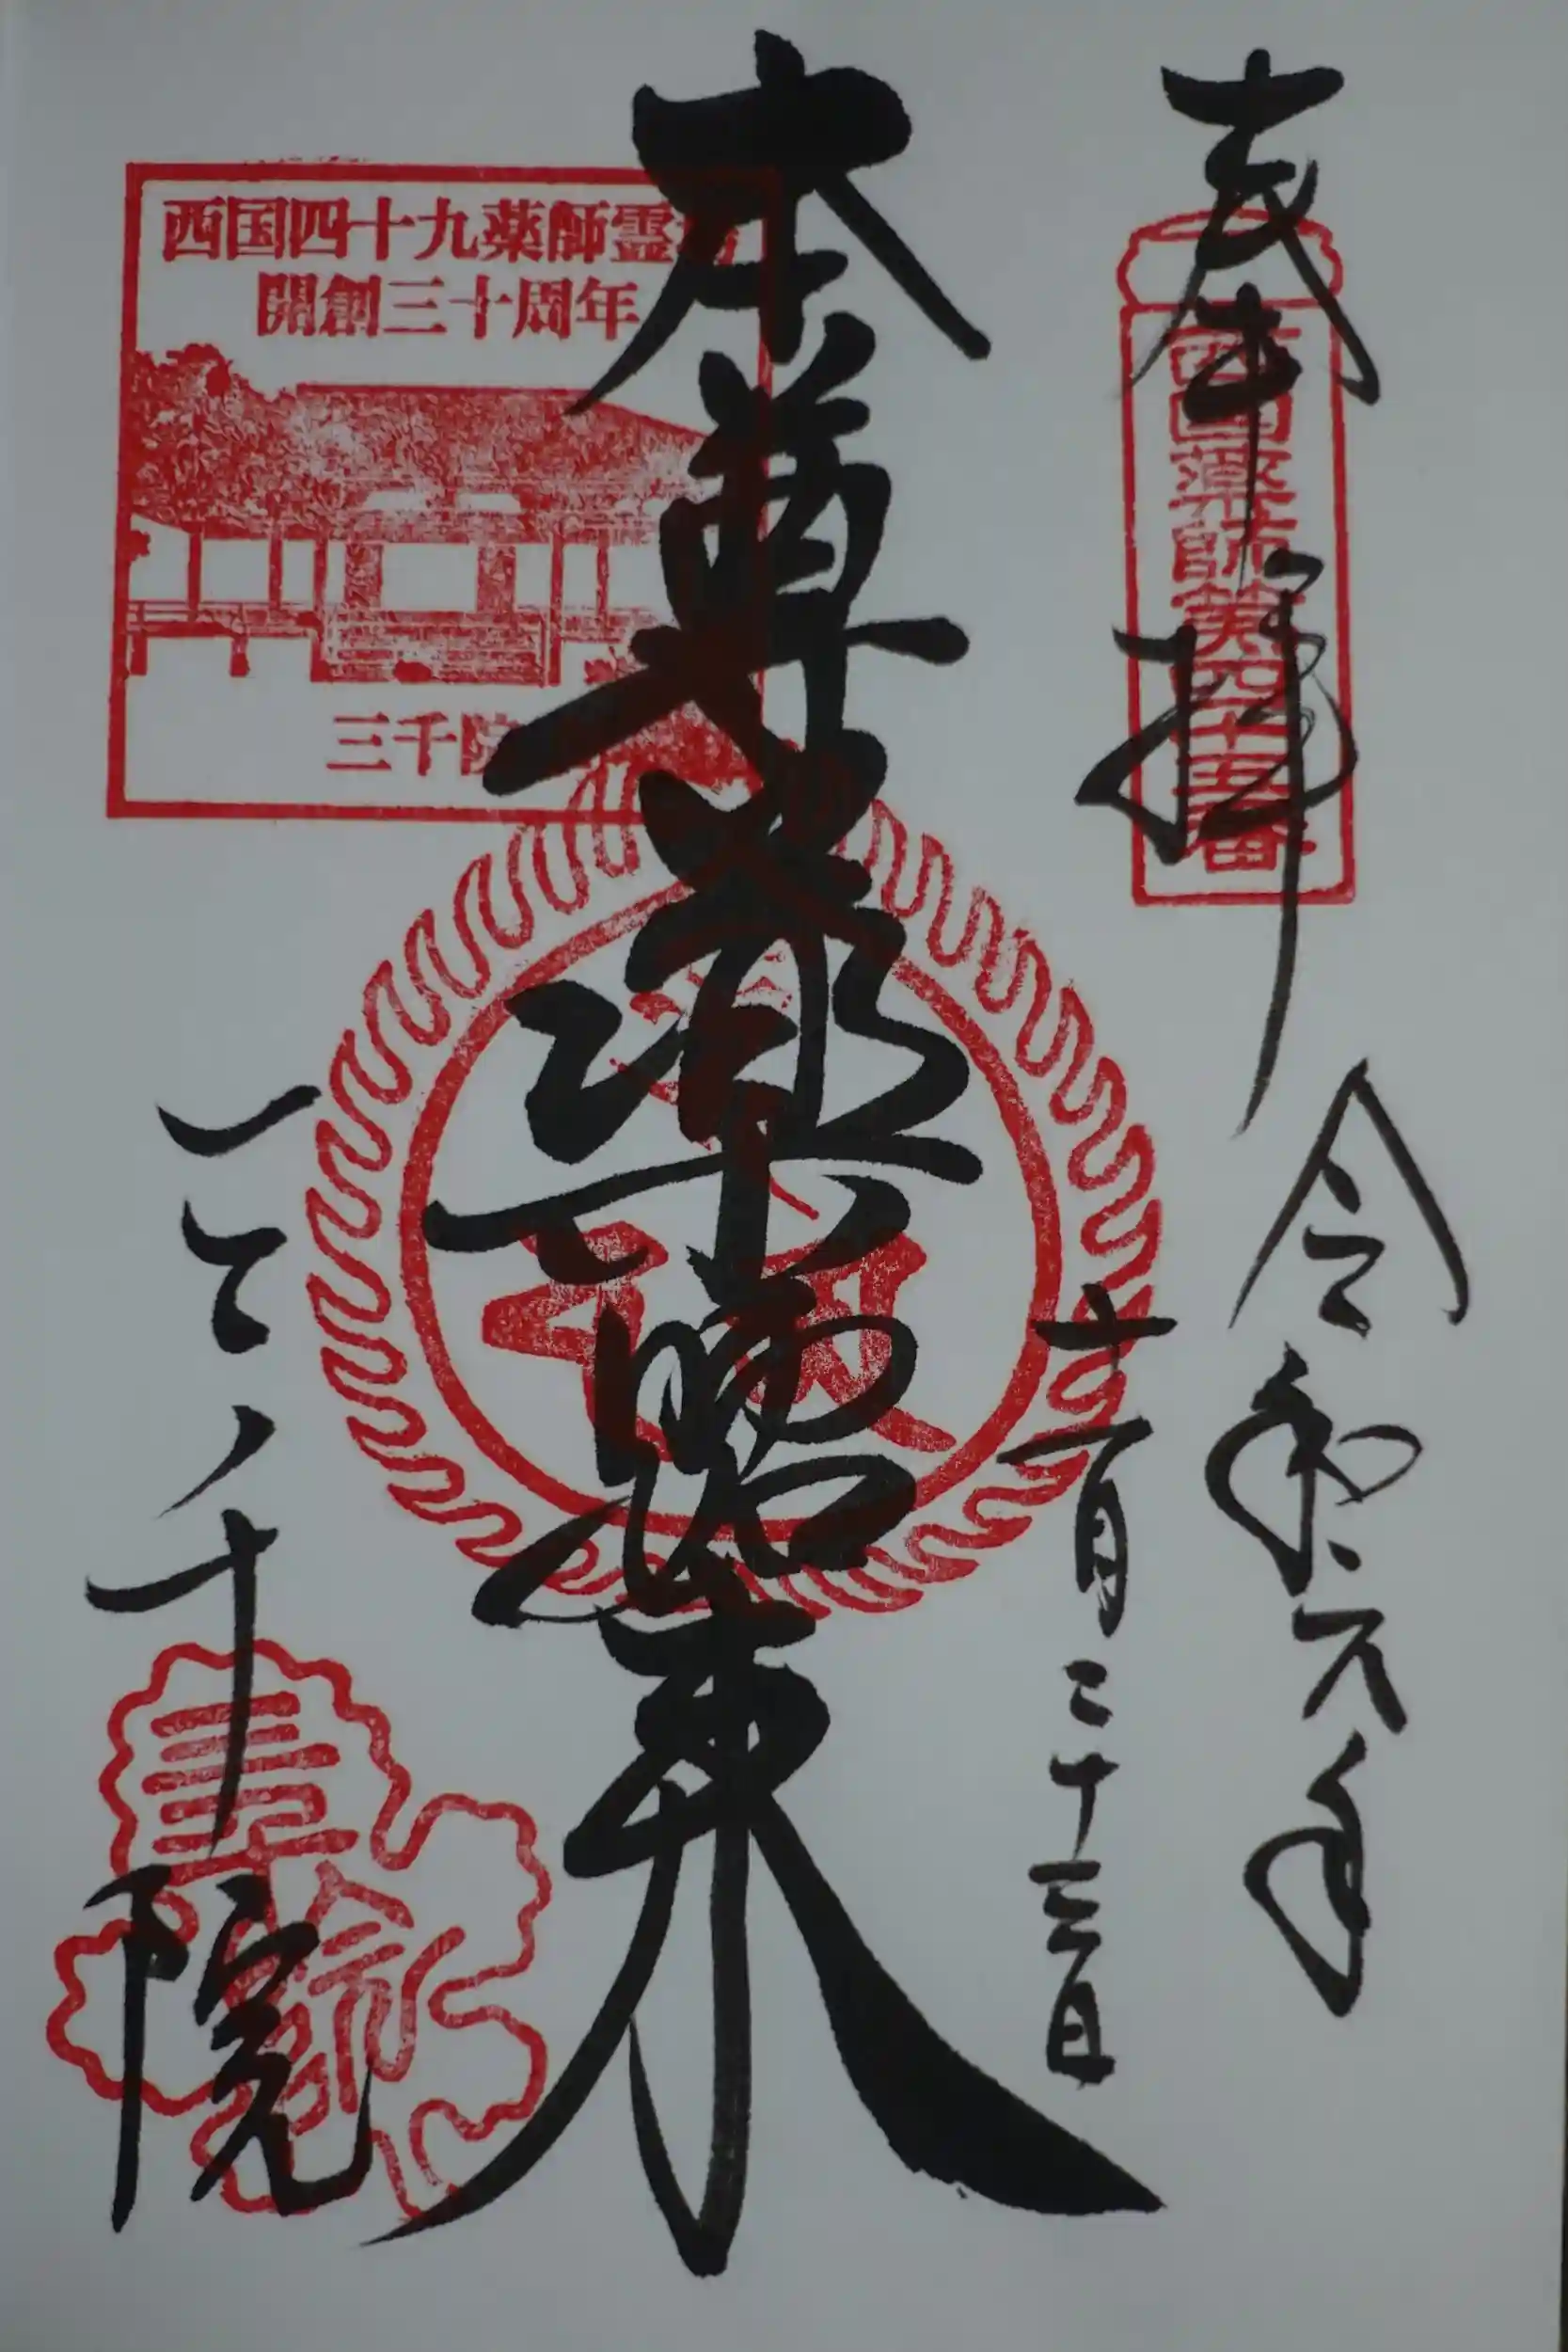 奉拝
西国薬師第四十五番
令和元年
十一月二十三日
本尊薬師如来
西国四十九薬師霊場
開創三十周年
三千院
三千院